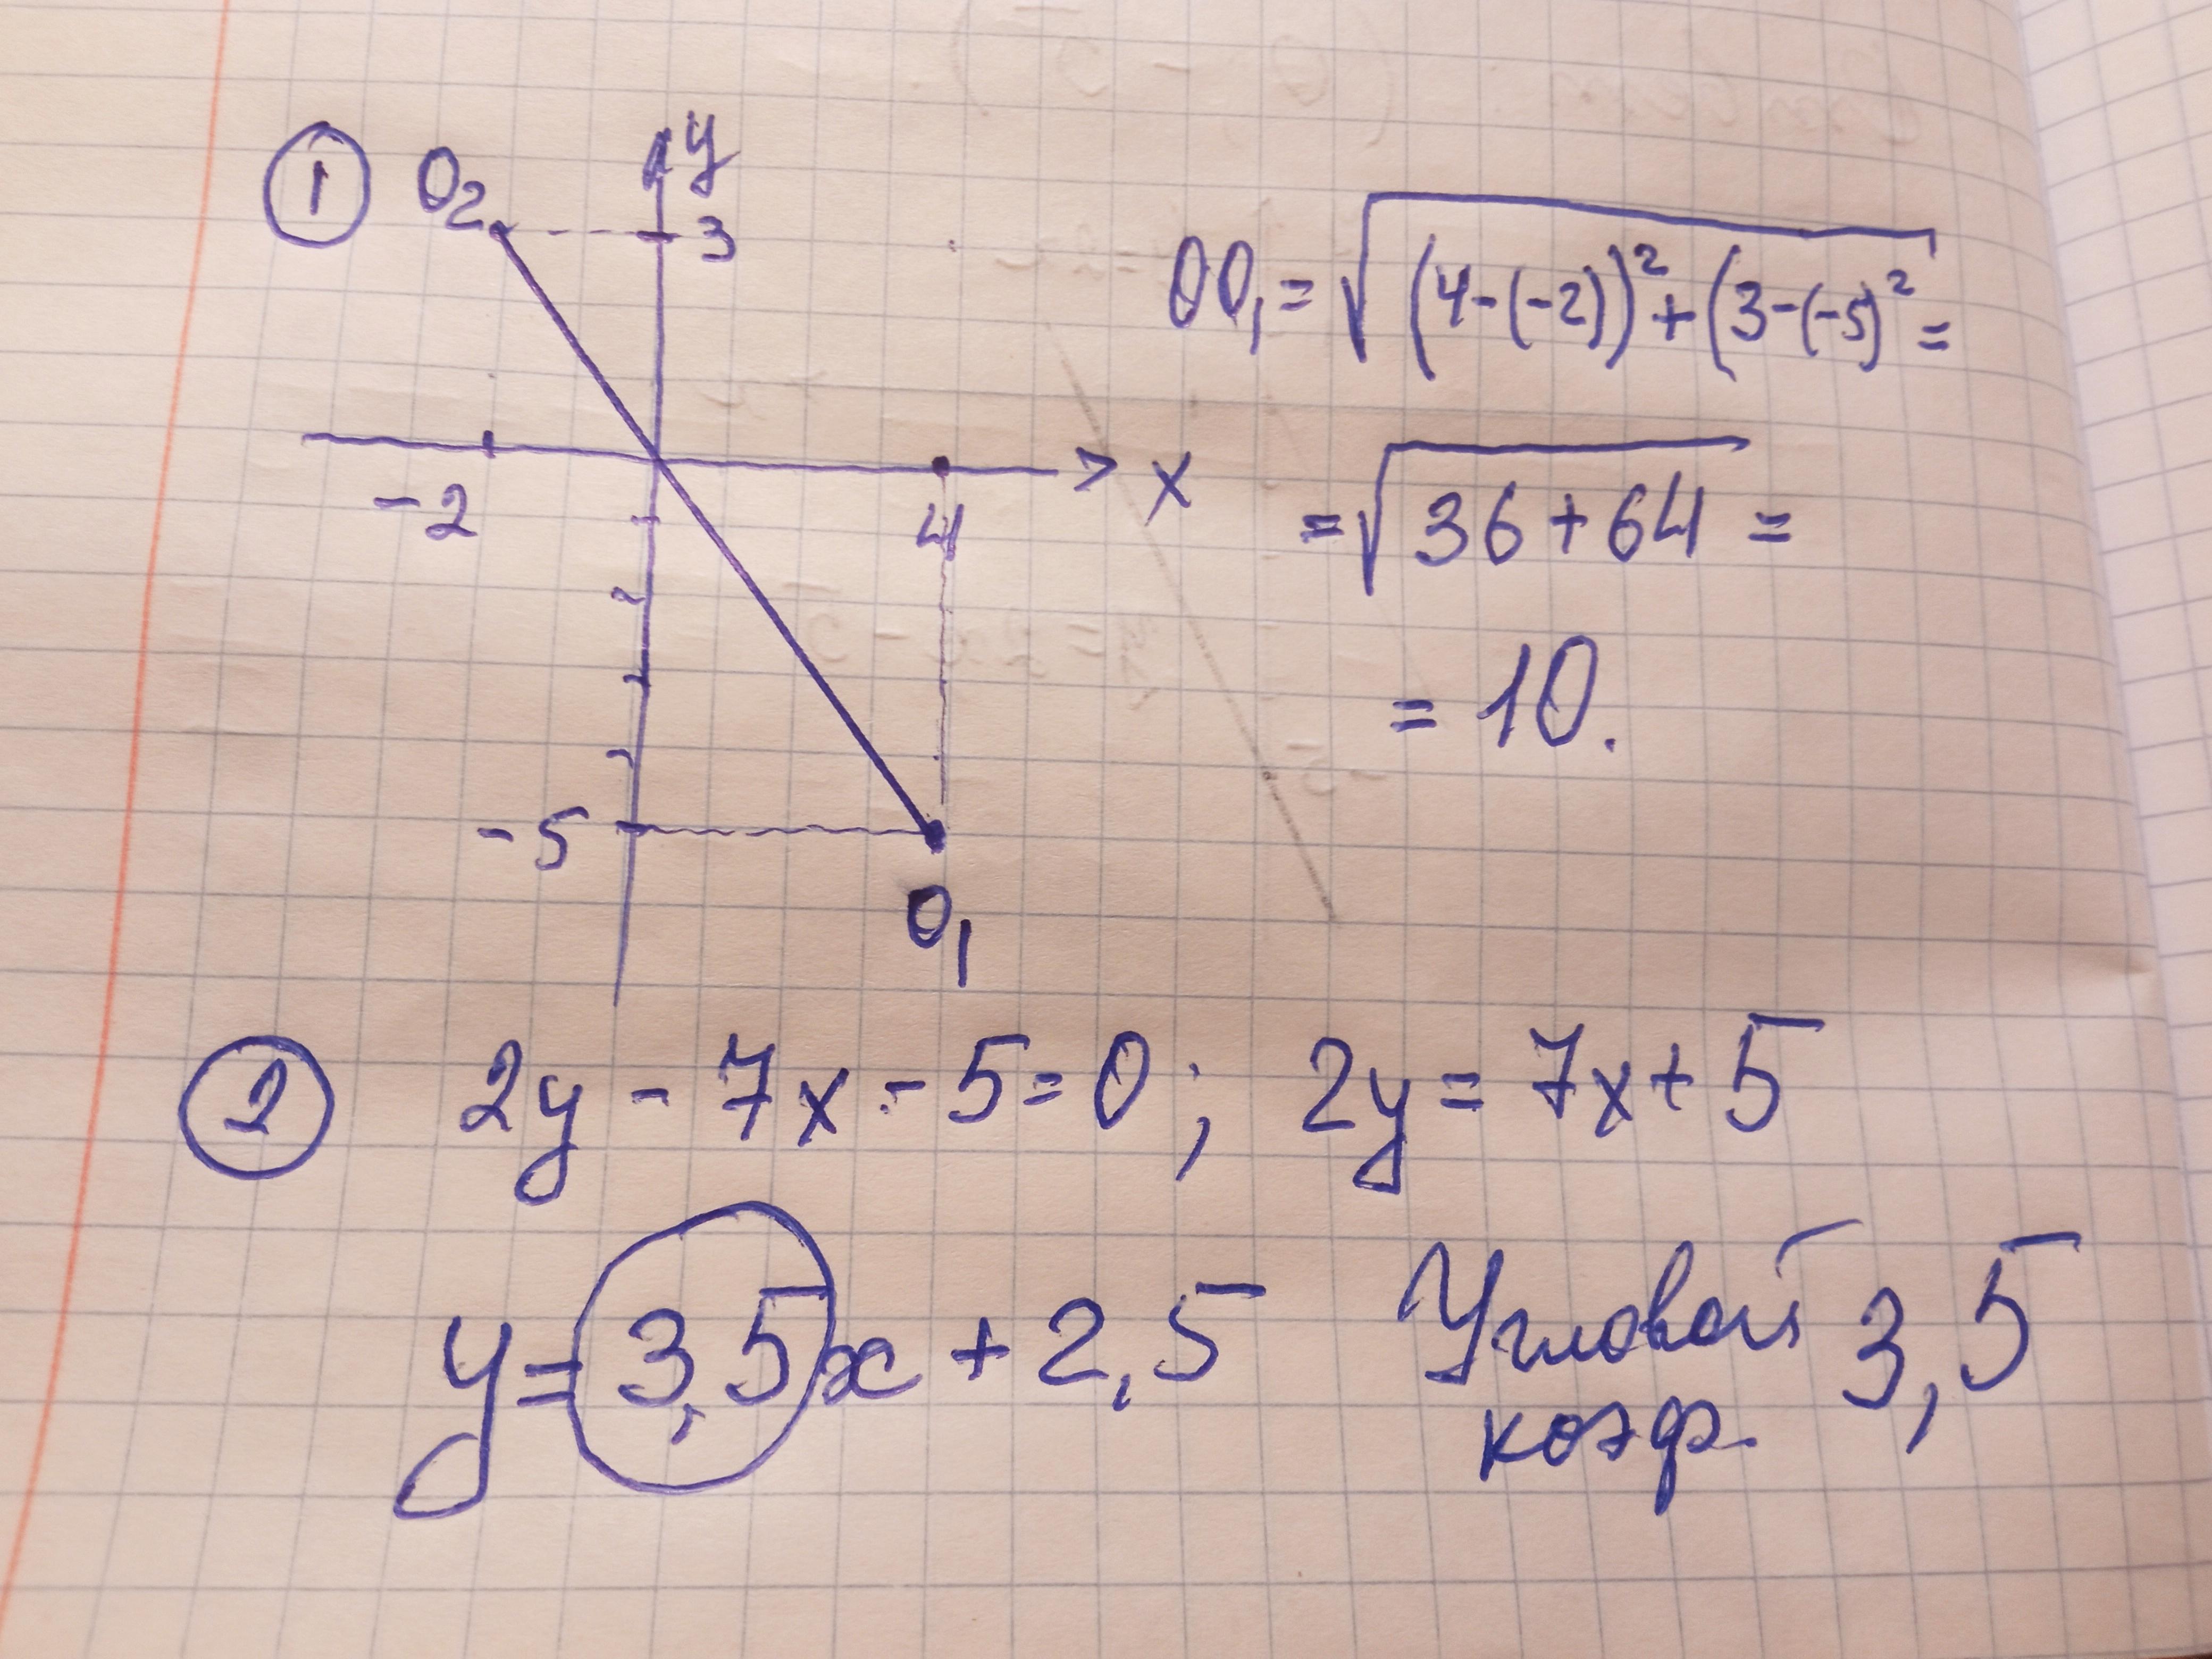 1 O₂ y
3
OO₁ = √((4-(-2))² + (3-(-5)² =
-2 4 > x
= √(36+64) =
= 10.
-5
O₁
2 2y - 7x - 5 = 0; 2y = 7x + 5
y = 3,5x + 2,5 Угловой 3,5
коэф.